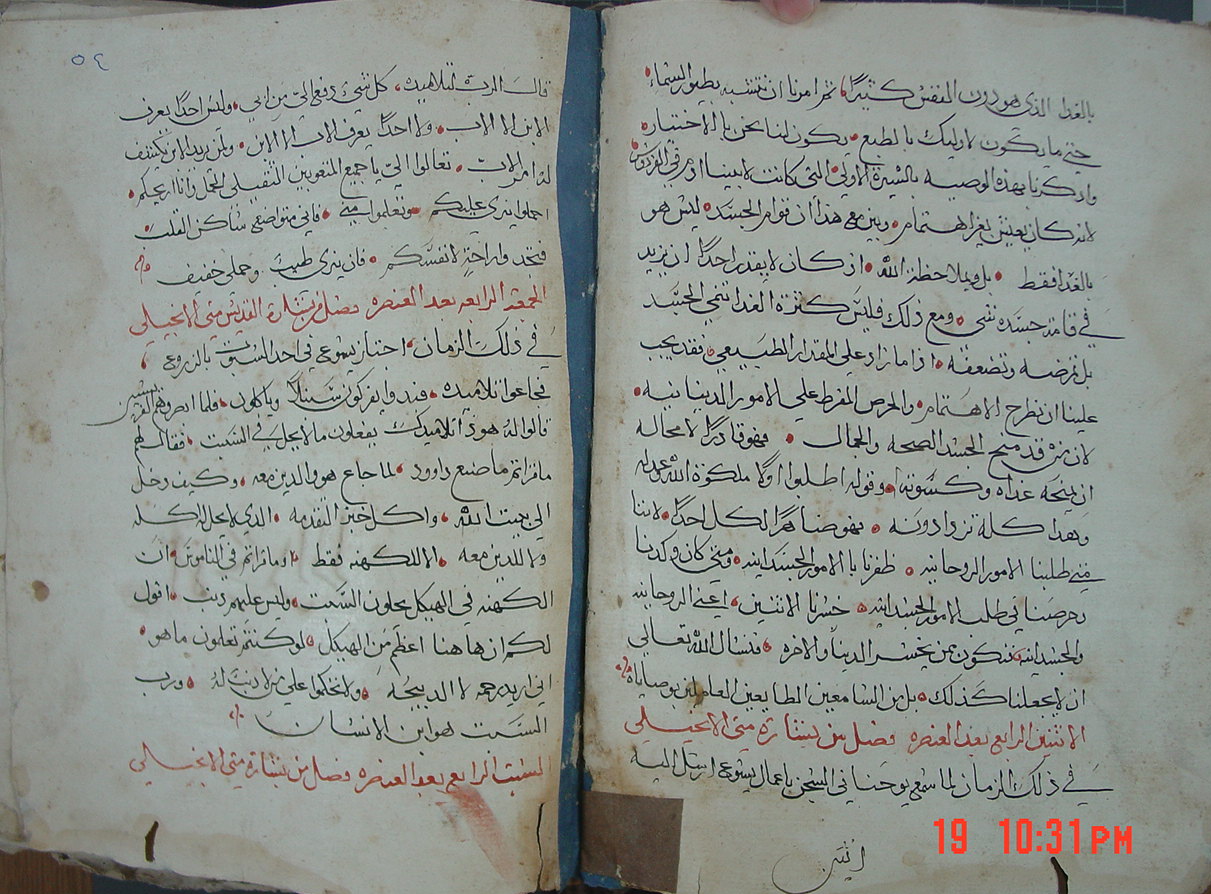 بالغدا الذي هو دون النفس كثيرًا ثم امرنا ان نتشبه بطيور السماء
حتي ما يكون لاوليك بالطبع يكون لنا نحن بالاختيار
واذكرنا بهذه الوصيه بالسيرة الاولي التي كانت لابينا ادم في الفردوس
لانه كان يعيش بغير اهتمام وبين مع هذا ان قوام الجسد ليس هو
بالغدا فقط بل وبملاحظة الله اذ كان لا يقدر احدًا ان يزيد
في قامة جسده شي ومع ذلك فليس كثرة الغدا تنمي الجسد
بل تمرضه وتضعفه اذا ما زاد علي المقدار الطبيعي فقد يجب
علينا ان نطرح الاهتمام والحرص المفرط علي الامور الدنيانيه
لان من قد منح الجسد الصحه والجمال فهو قادرًا لا محاله
ان يمنحه غداه وكسوته وقوله اطلبوا اولًا ملكوة الله وعدله
وهذا كله تزدادونه فهو ضامرًا لكل احدًا لاننا
متي طلبنا الامور الروحانيه ظفرنا بالامور الجسدانيه ومتي كان وكدنا
وحرصنا في طلب الامور الجسدانيه خسرنا الاثنين اعني الروحانيه
والجسدانيه فنكون ممن يخسر الدنيا والاخره فنسال الله تعالي
ان لا يجعلنا كذلك بل من السامعين الطايعين العاملين بوصاياه
الاثنين الرابع بعد العنصره فصل من بشارة متي الانجيلي
في ذلك الزمان لما سمع يوحنا في السجن باعمال يسوع ارسل اليه
اثنين
٥٤
قال الرب لتلاميذه كل شي دفع الي من ابي وليس احدًا يعرف
الابن الا الاب ولا احدًا يعرف الاب الا الابن ولمن يريد الابن يكشف
له الاب تعالوا الي يا جميع المتعوبين الثقيلي الحمل وانا اريحكم
احملوا نيري عليكم وتعلموا مني فاني متواضع ساكن القلب
فتجدوا راحة لانفسكم فان نيري طيب وحملي خفيف
الجمعه الرابعه بعد العنصره فصل من بشارة القديس متي الانجيلي
في ذلك الزمان اجتاز يسوع في احد السبوت بالزروع
فجاعوا تلاميذه فبدوا يفركون سنبلًا وياكلون فلما ابصروهم الفريسيين
قالوا له هوذا تلاميذك يفعلون ما لا يحل في السبت فقال لهم
ما قراتم ما صنع داوود لما جاع هو والذين معه وكيف دخل
الي بيت الله واكل خبز التقدمه الذي لا يحل له اكله
ولا للذين معه الا للكهنه فقط او ما قراتم في الناموس ان
الكهنه في الهيكل يحلون السبت وليس عليهم ذنب اقول
لكم ان هاهنا اعظم من الهيكل لو كنتم تعلمون ما هو
اني اريد رحمه لا الدبيحه ولا تحكموا علي من لا ذنب له ورب
السبت هو ابن الانسان
السبت الرابع بعد العنصره فصل من بشارة متي الانجيلي
19 10:31PM